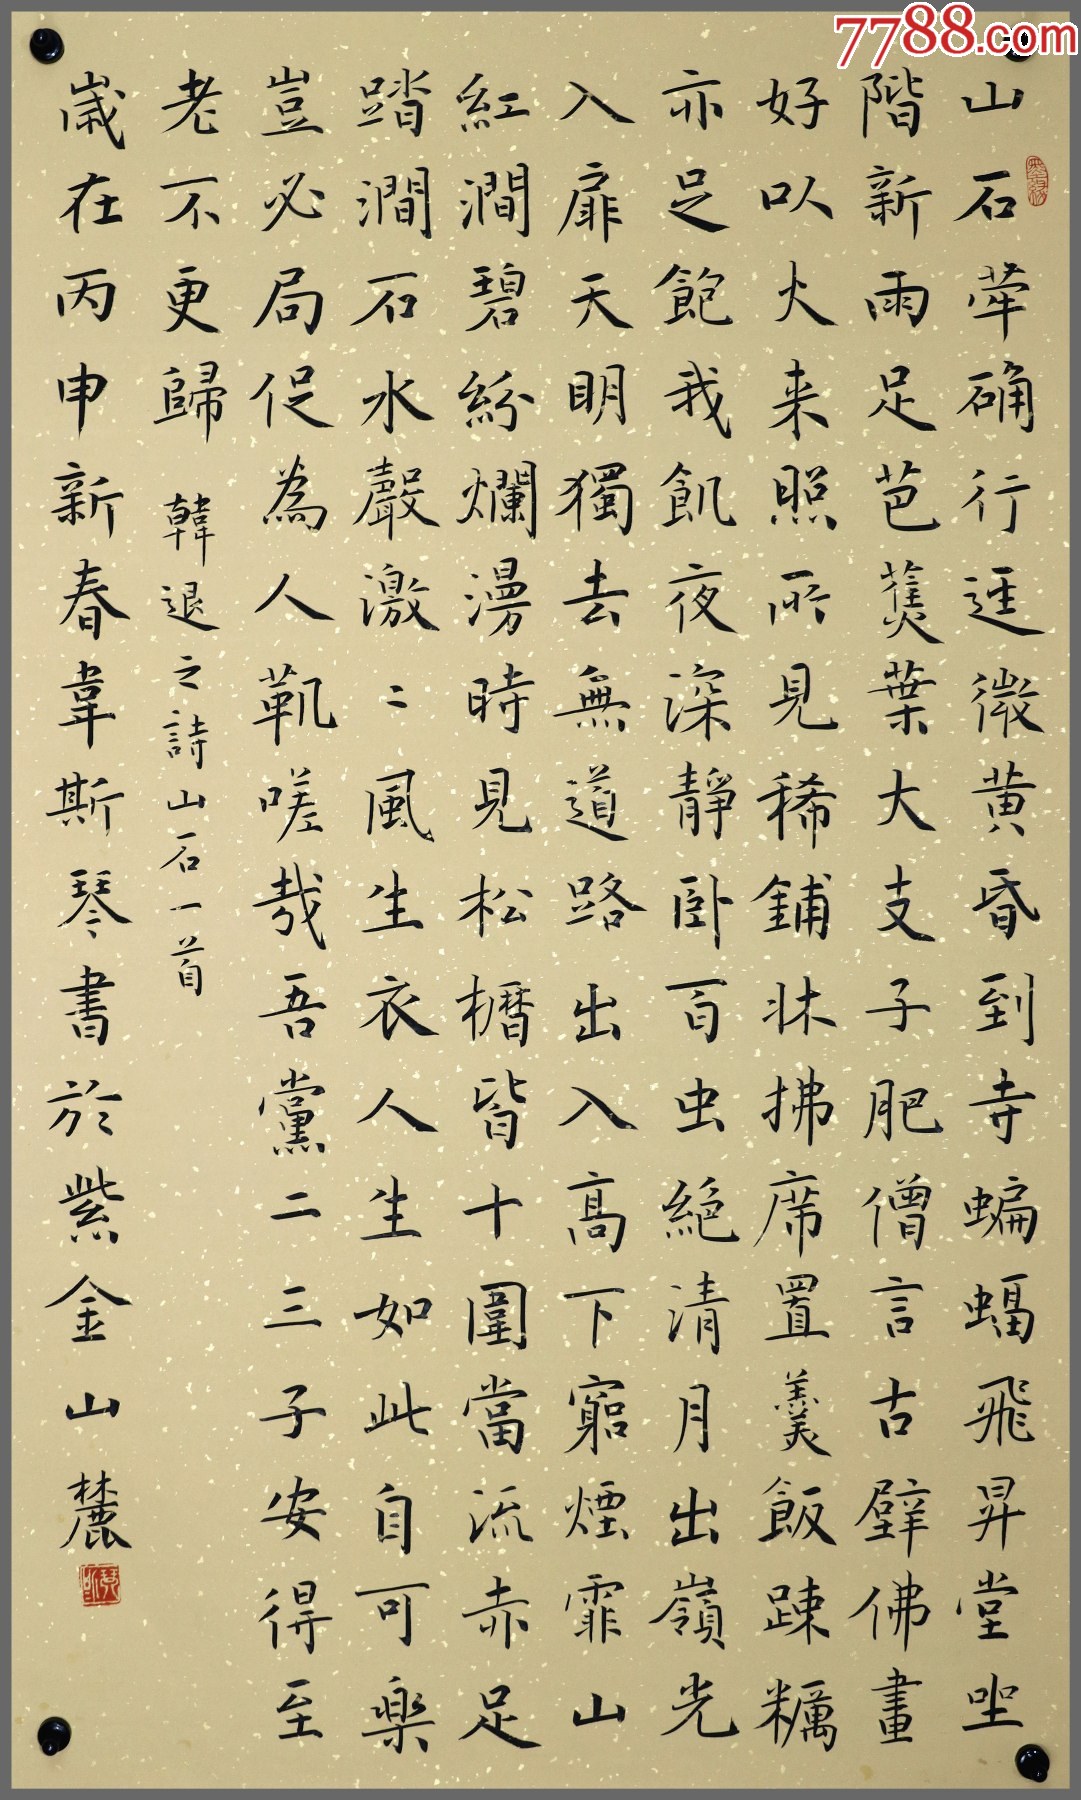 7788.com
山石犖确行迳微黄昏到寺蝙蝠飛昇堂坐
階新雨足芭蕉葉大支子肥僧言古壁佛畫
好以火来照所見稀鋪牀拂席置羹飯踈糲
亦足飽我飢夜深静卧百虫絕清月出嶺光
入扉天明獨去無道路出入高下窮煙霏山
紅澗碧紛爛漫時見松櫪皆十圍當流赤足
踏澗石水聲激〻風生衣人生如此自可樂
豈必局促為人鞿嗟哉吾黨二三子安得至
老不更歸 韓退之詩山石一首
歲在丙申新春韋斯琴書於紫金山麓